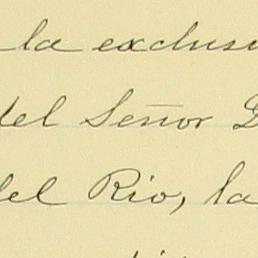 la exclusi
del Señor D
del Rio, la